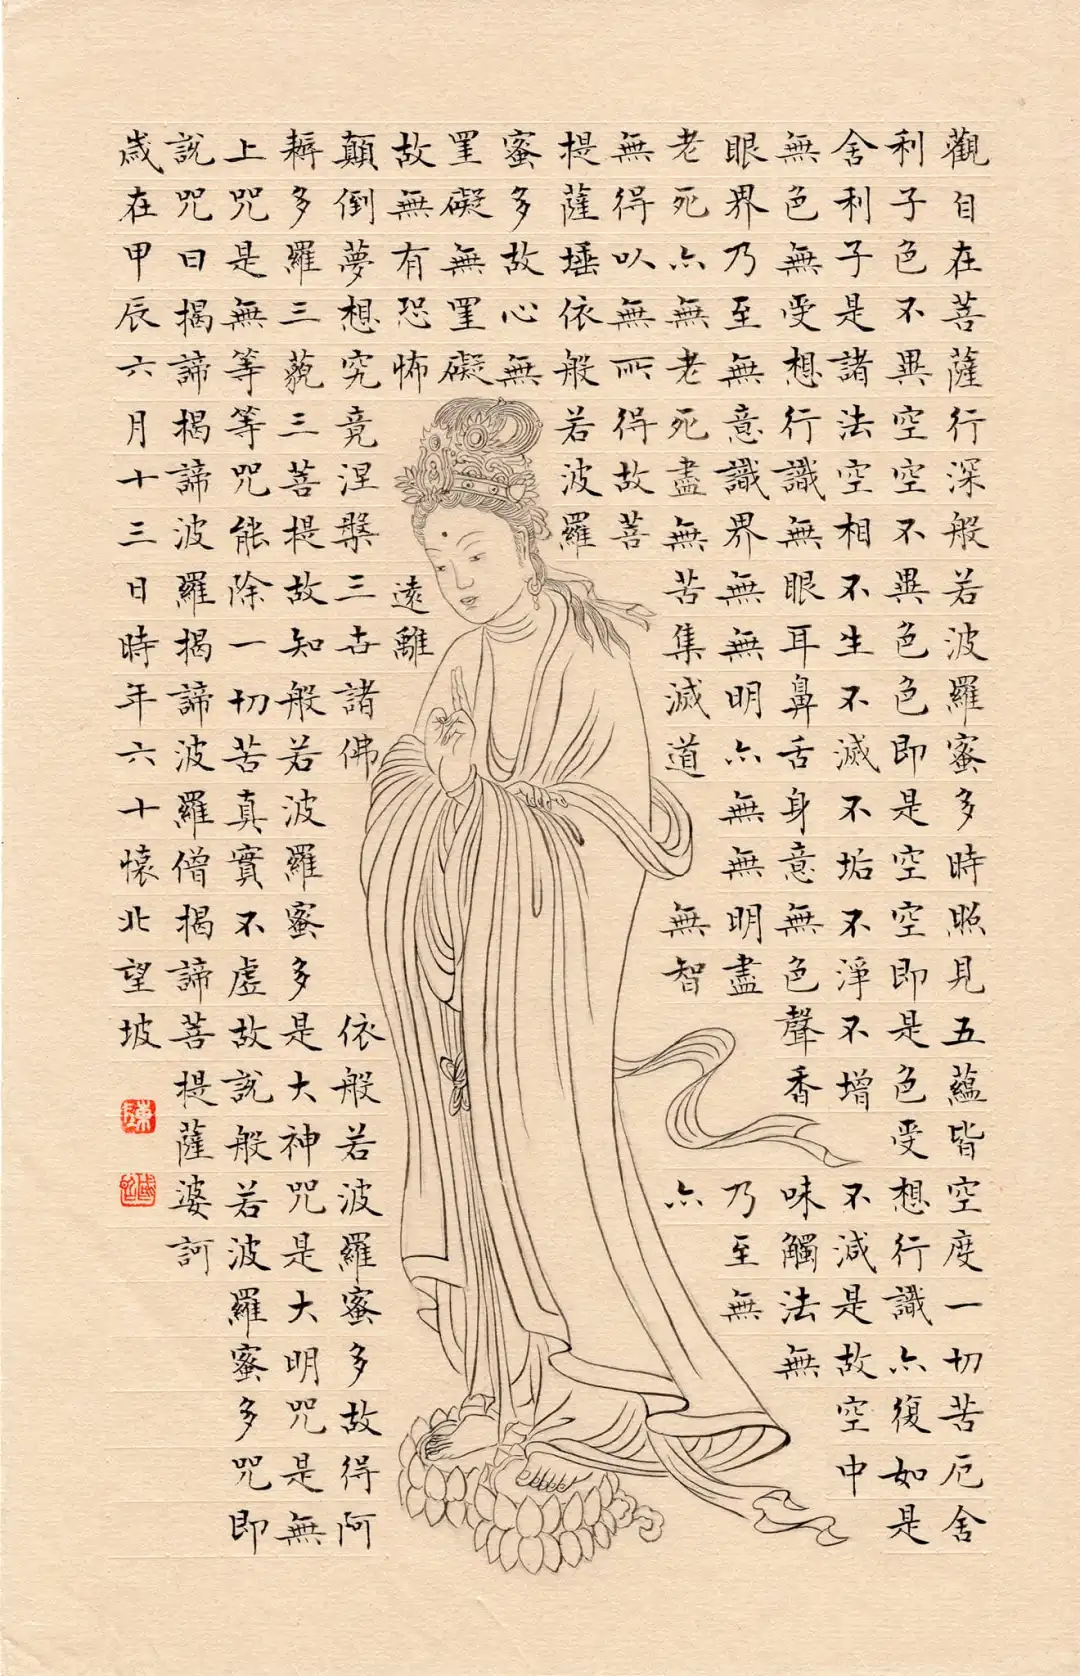 觀自在菩薩行深般若波羅蜜多時照見五蘊皆空度一切苦厄舍
利子色不異空空不異色色即是空空即是色受想行識亦復如是
舍利子是諸法空相不生不滅不垢不淨不增不減是故空中
無色無受想行識無眼耳鼻舌身意無色聲香味觸法無
眼界乃至無意識界無無明亦無無明盡乃至無
老死亦無老死盡無苦集滅道無智亦
無得以無所得故菩
提薩埵依般若波羅
蜜多故心無
罣礙無罣礙
故無有恐怖遠離
顛倒夢想究竟涅槃三世諸佛依般若波羅蜜多故得阿
耨多羅三藐三菩提故知般若波羅蜜多是大神咒是大明咒是無
上咒是無等等咒能除一切苦真實不虛故說般若波羅蜜多咒即
說咒曰揭諦揭諦波羅揭諦波羅僧揭諦菩提薩婆訶
歲在甲辰六月十三日時年六十懷北望坡
陳